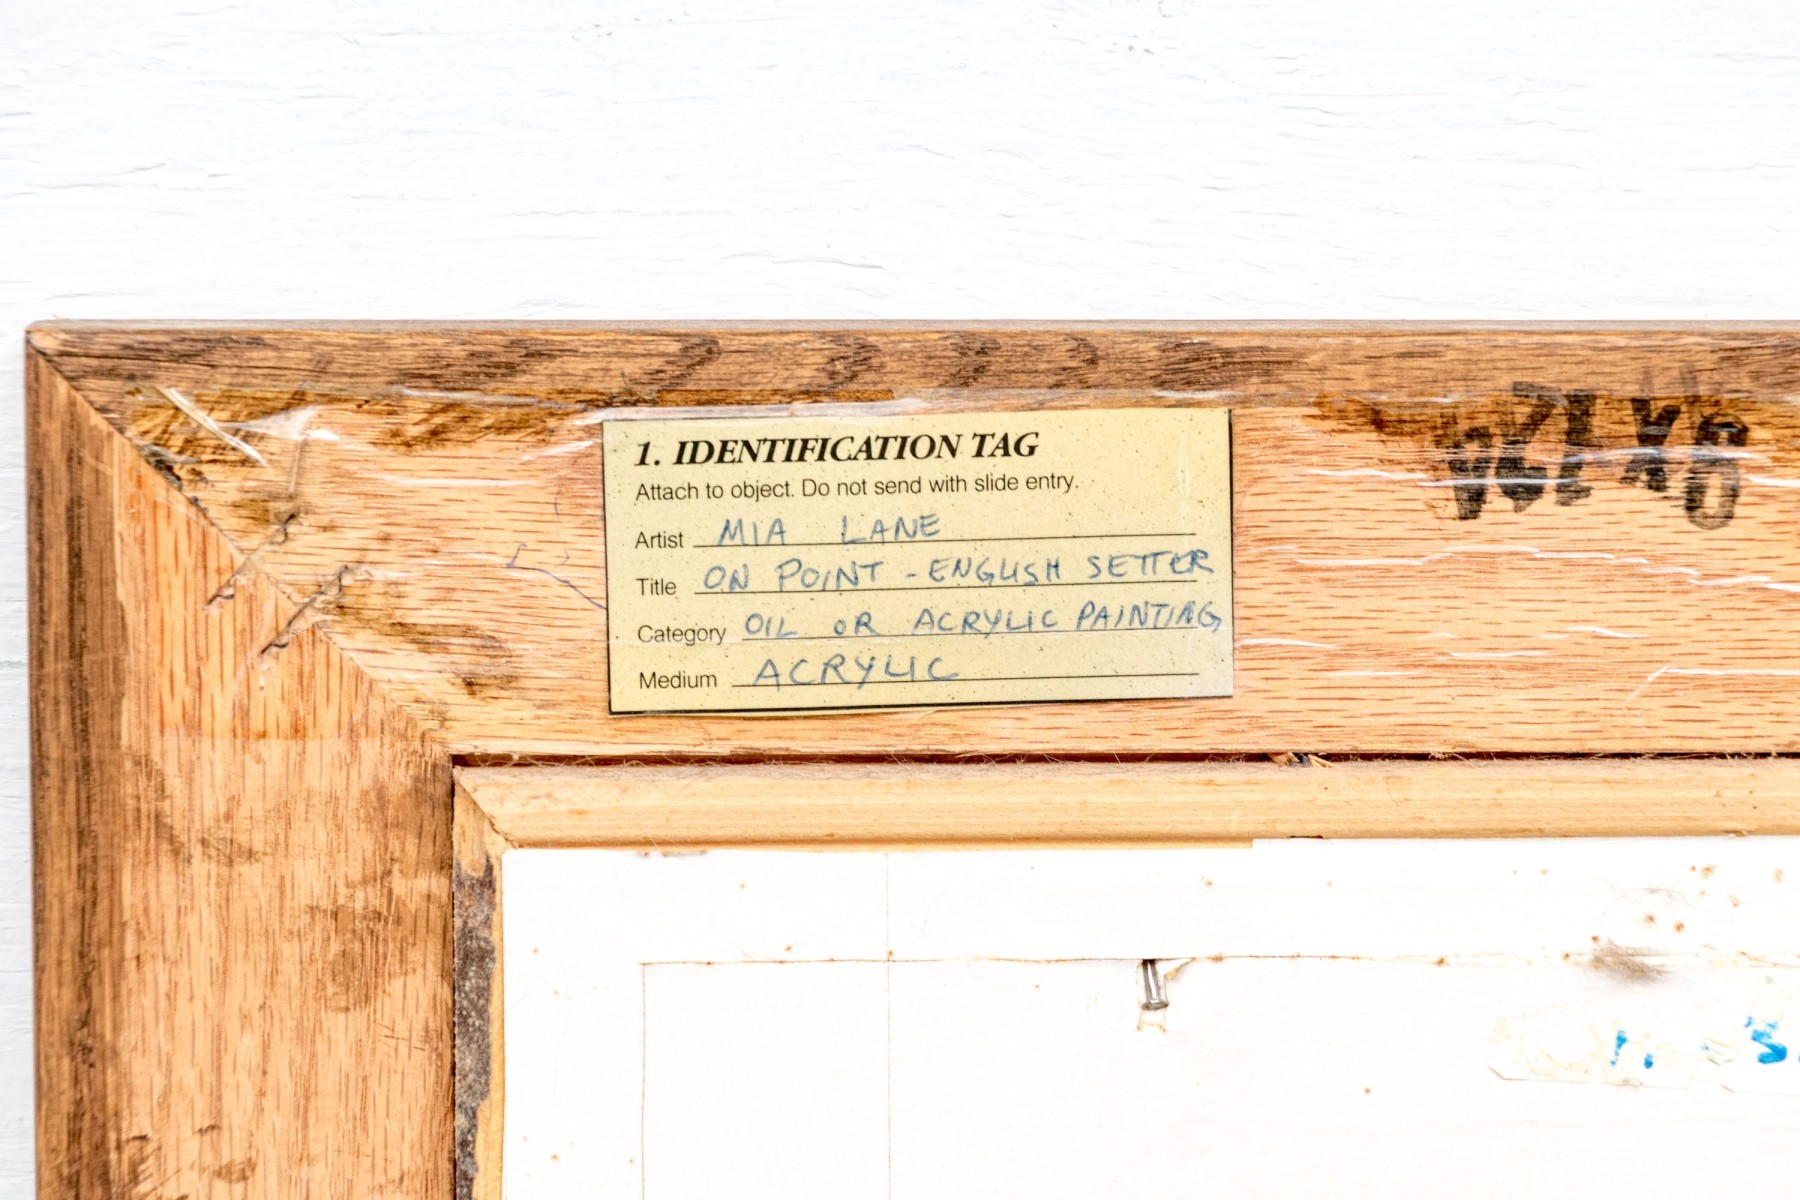 1. IDENTIFICATION TAG
Attach to object. Do not send with slide entry.
Artist MIA LANE
Title ON POINT - ENGLISH SETTER
Category OIL OR ACRYLIC PAINTING
Medium ACRYLIC